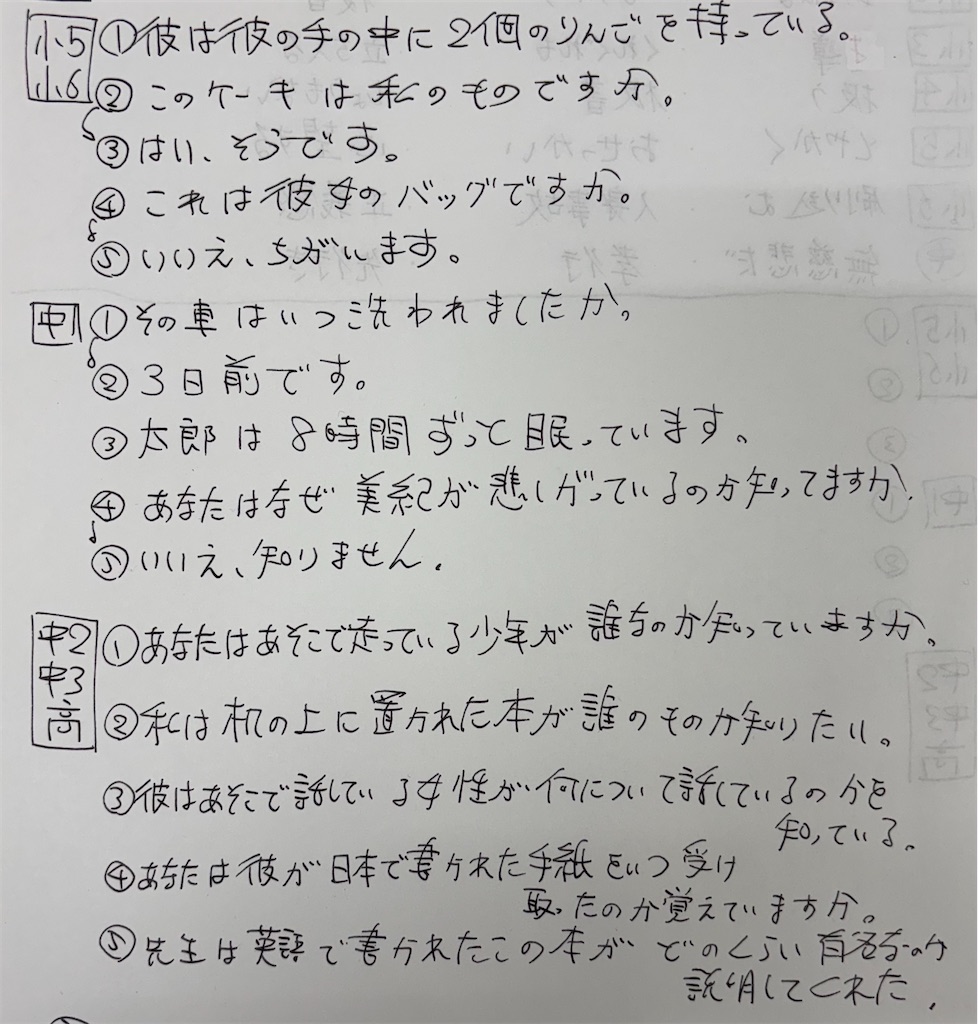 小5 ①彼は彼の手の中に2個のりんごを持っている。
小6 ②このケーキは私のものですか。
③はい、そうです。
④これは彼女のバッグですか。
⑤いいえ、ちがいます。
中1 ①その車はいつ洗われましたか。
②3日前です。
③太郎は8時間ずっと眠っています。
④あなたはなぜ美紀が悲しがっているのか知ってますか.
⑤いいえ、知りません.
中2 ①あなたはあそこで走っている少年が誰なのか知っていますか。
中3
高 ②私は机の上に置かれた本が誰のものか知りたい。
③彼はあそこで話している女性が何について話しているのかを
知っている。
④あなたは彼が日本で書かれた手紙をいつ受け
取ったのか覚えていますか。
⑤先生は英語で書かれたこの本がどのくらい有名なのか
説明してくれた.